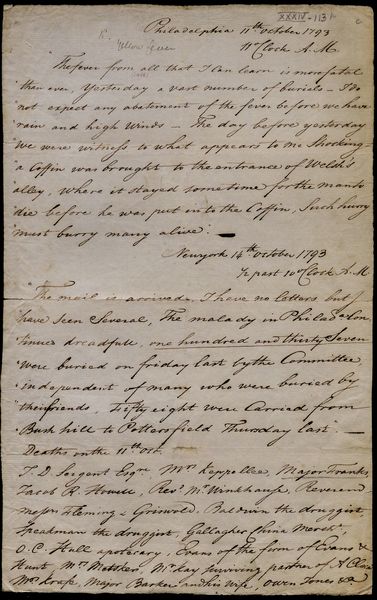 XXXIV-113
Philadelphia 11th October 1793
Yellow Fever
11 oClock A.M.
"The fever from all that I can learn is more fatal
than ever. Yesterday a vast number of burials - I do
"not expect any abatement of the fever before we have
"rain and high winds - The day before yesterday
"we were witness to what appears to me Shocking -
"a Coffin was brought to the entrance of Welsh's
"alley, where it stayed some time for the man to
"die before he was put in to the Coffin, Such hurry
"must burry many alive:
Newyork 14th October 1793
½ past 10 oClock A.M
"The mail is arrived, I have no letters but
"have seen Several, The malady in Philada Con,
"tinue dreadfull, one hundred and thirty Seven
"were buried on friday last by the Committee
"independent of many who were buried by
"their friends. Fifty eight were Carried from
"Bush hill to Pottersfield Thursday last"
Deaths on the 11th Oct.
J. D. Sergent Esqr. Mrs Keppellee, Major Franks,
Jacob R. Howell, Revd. Mr Winkhause, Reverend
Fleming & Griswold. Baldwin the druggist
Speakman the druggist, Gallagher China Mercht,
O.C. Hull apotecary, Evans of the firm of Evans &
Hunt, Mrs McKay surviving partner of A Clow
Mrs Major Barker and his wife, Owen Jones &a